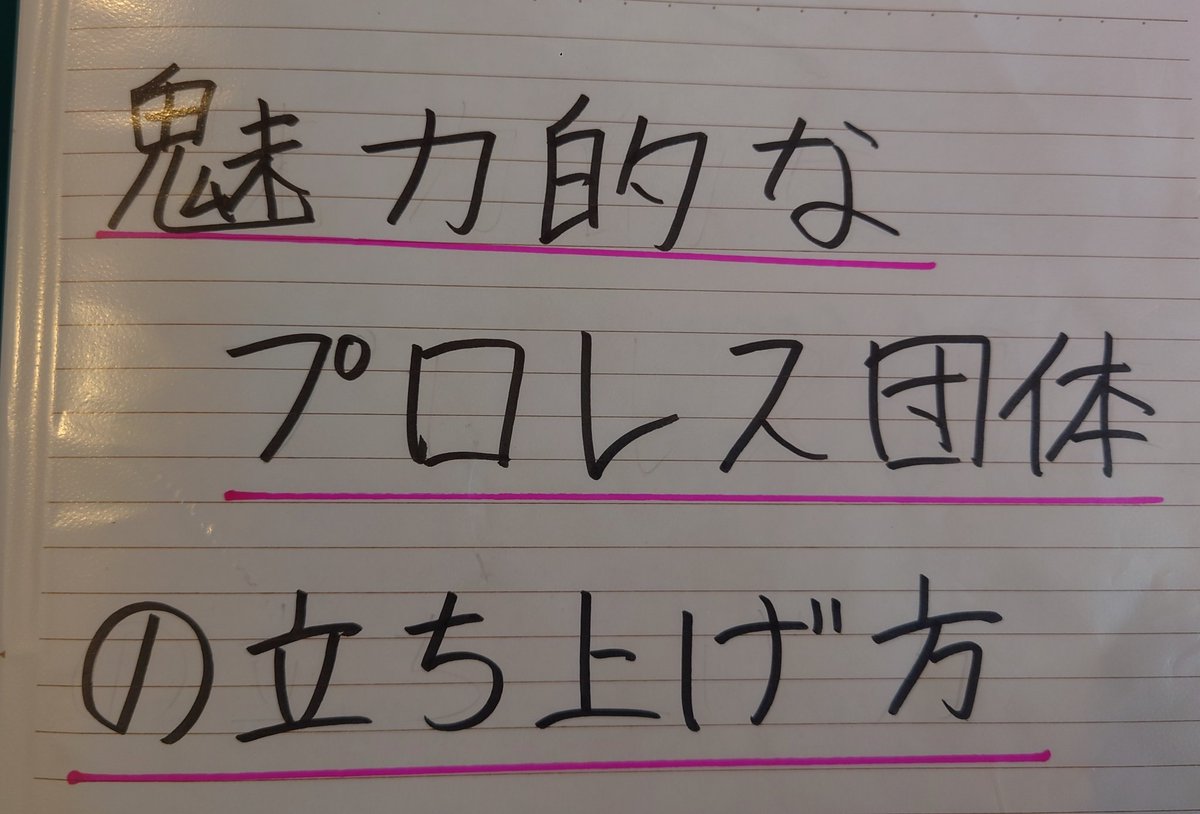 魅力的な
プロレス団体
の立ち上げ方